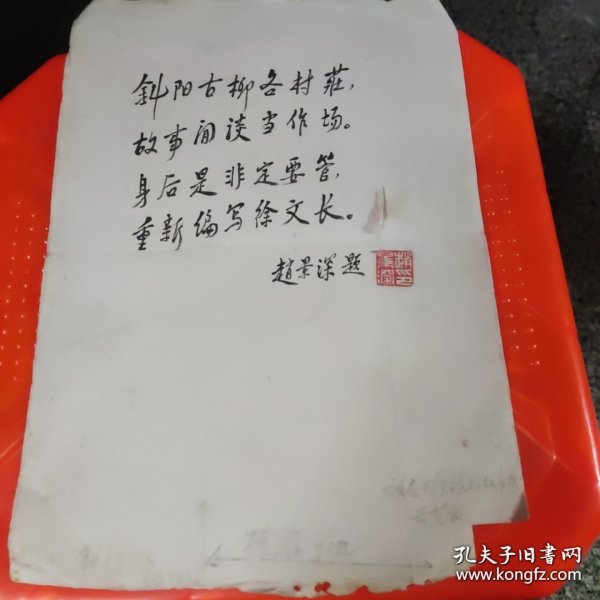 斜阳古柳各村莊，
故事闲谈当作场。
身后是非定要管，
重新编写徐文长。
趙景深题
孔夫子旧书网
www.kongfz.com